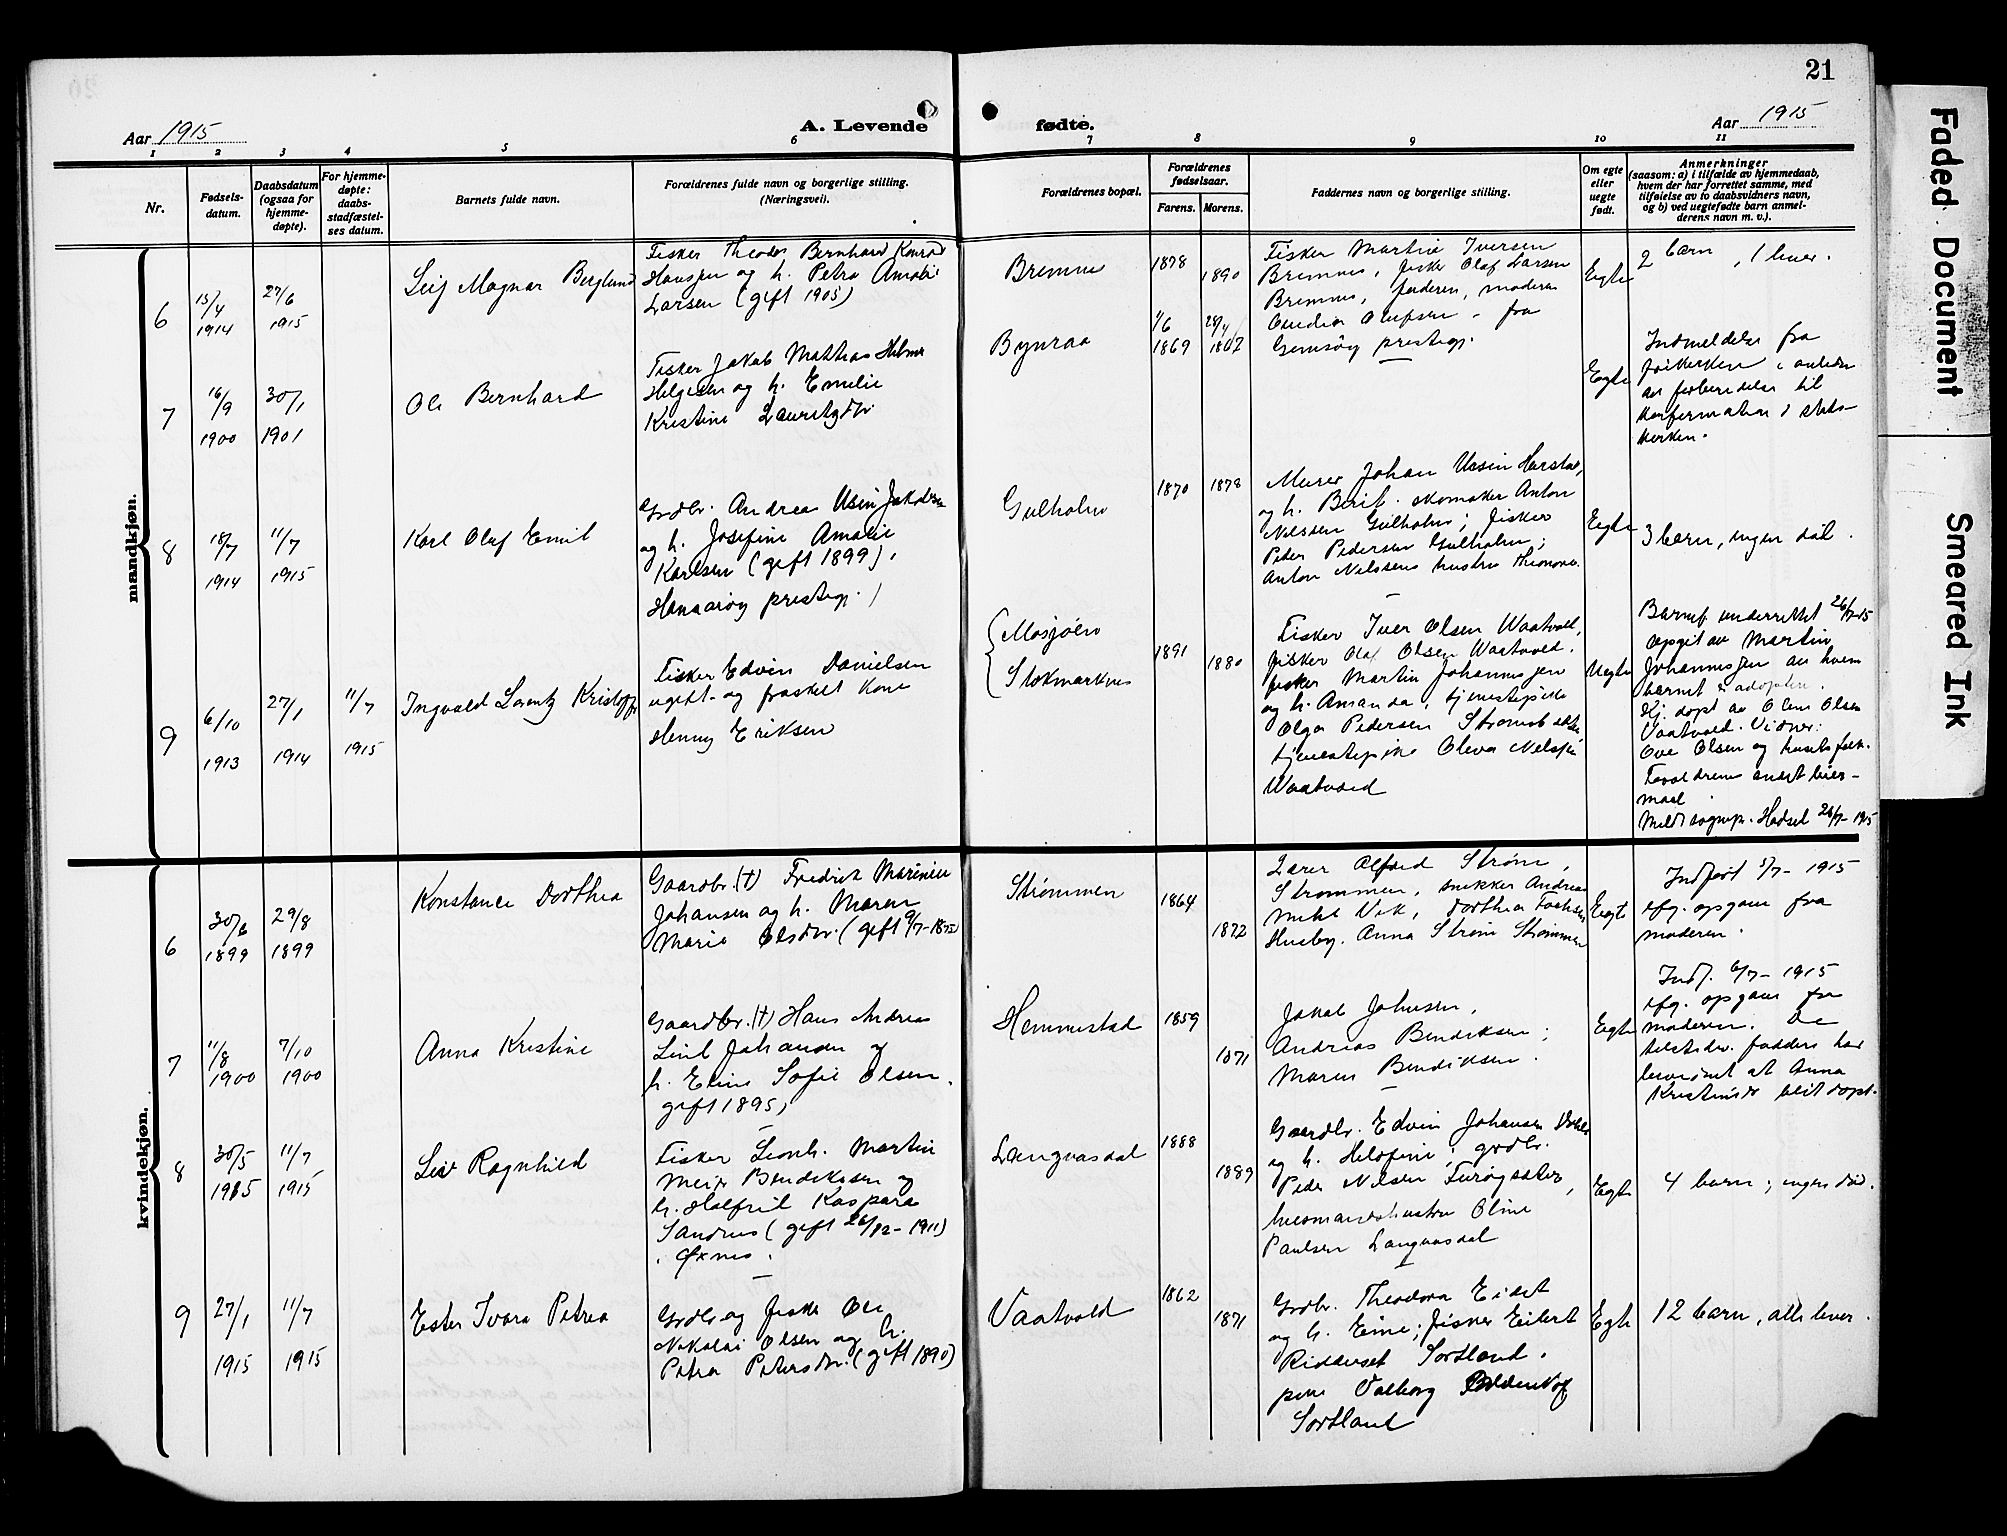 21
Aar 1915
A. Levende
fødte.
Aar 1915
1 2 3 4 5 6 7 8 9 10 11
Nr.
Fødsels-
datum.
Daabsdatum
(ogsaa for
hjemme-
døpte).
For hjemme-
døpte:
daabs-
stadfæstel-
ses datum.
Barnets fulde navn.
Forældrenes fulde navn og borgerlige stilling.
(Næringsvei).
Forældrenes bopæl.
Forældrenes
fødselsaar.
Farens. Morens.
Faddernes navn og borgerlige stilling.
Om egte
eller
uegte
født.
Anmerkninger
(saasom: a) i tilfælde av hjemmedaab,
hvem der har forrettet samme, med
tilføielse av to daabsvidners navn,
og b) ved uegtefødte barn anmel-
derens navn m. v.).
mandkjøn.
6
15/4
1914
27/6
1915
Leif Magnar Berglund
Fisker Theodor Bernhard Konrad
Hansen og h. Petra Amalie
Larsen (gift 1905)
Bremnes
1878
1890
Fisker Martin Iversen
Bremnes, fisker Olaf Larsen
Bremnes, faderen, moderen
Egte
2 barn, 1 lever.
7
16/9
1900
30/1
1901
Ole Bernhard
Fisker Jakob Mathias Helmer
Helgesen og h. Emelie
Kristine
1/6
1869
28/4
1867
Olufsen fra
Gimsøy prestegj.
Egte
Indmeldelse fra
frikirken i anledn
av forberedelse til
konfirmation i stats-
kirken.
8
18/7
1914
11/7
1915
Karl Olaf Emil
Grdbr. Andreas Usin Jakobsen
og h. Josefine Amalie
Karlsen (gift 1899),
Hamarøy prestegj.)
Gulholm
1870
1878
Murer Johan Ursin Harstad,
og h. Berit. skomaker Anton
Nilssen Gulholm; fisker
Peder Pedersen Gulholm;
Anton Nilssens hustru
Egte
3 barn, ingen død.
9
6/10
1913
27/1
1914
11/7
1915
Ingvald Lorentz Kristoffer
Fisker Edvin Danielsen
ugift og fraskilt kone
Henny Eriksen
Mosjøen
Stokmarknes
1891
1880
Fisker Iver Olsen Vaatvold,
fisker Olaf Olsen Vaatvold.
fisker Martin Johannesen
og h. Amanda, tjenestepike
Olga Pedersen
tjenestepike Oleva Nelsen
Vaatvold
Uegte
Barnef. underrettet 26/7-15
opgit av Martin
Johannesen av hvem
barnet er adopter.
Hj. døpt av Olsen
Vaatvold. Vidner:
Ove Olsen og husets folk.
Forældrene andet leier-
maal
Meldt sognepr. Hadsel 26/7-1915
kvindekjøn.
6
30/6
1899
29/8
1899
Konstance Dorthea
Gaardbr. (†) Fredrik Marinius
Johansen og h. Maren
Marie Olsdtr. (gift
Strømmen
1864
1872
Lærer Alfred Strøm,
Strømmen, snikker Andreas
Vik, Dorthea
Husby. Anna Strøm Strømmen
Egte
Indført 5/7-1915
efg. opgave fra
moderen.
7
11/8
1900
7/10
1900
Anna Kristine
Gaardbr. (†) Hans Andreas
Johansen og
h. Eline Sofie Olsen.
gift 1895)
Hemmestad
1859
1871
Jakob Johnsen,
Andreas Bendiksen;
Maren Bendiksen.
Egte
Indf. 6/7-1915
efg. opgave fra
moderen. De
tilstedev. faddere har
bevidnet at Anna
Kristine er blit døpt.
8
30/5
1915
11/7
1915
Liv Ragnhild
Fisker Leonh. Martin
Meier Bendiksen og
h. Halfrid Kaspara
Sandnes (gift 26/12-1911)
i Øxnes.
Langvasdal
1888
1889
Gaardbr. Edvin Johansen
og h. grdbr.
Peder Nilsen
husmandshustru Oline
Paulsen Langvasdal
Egte
4 barn; ingen død.
9
27/1
1915
11/7
1915
Ester Ivara Petrea
Grdbr og fisker Ole
Nikolai Olsen og h.
Petra Petersdtr. (gift 1890)
Vaatvold
1862
1871
Grdbr. Theodora Eidet
og h. Eline; fisker Eilert
Ridderset Sortland.
pike Valborg
Sortland
Egte
12 barn, alle lever.
Faded Document
Smeared Ink